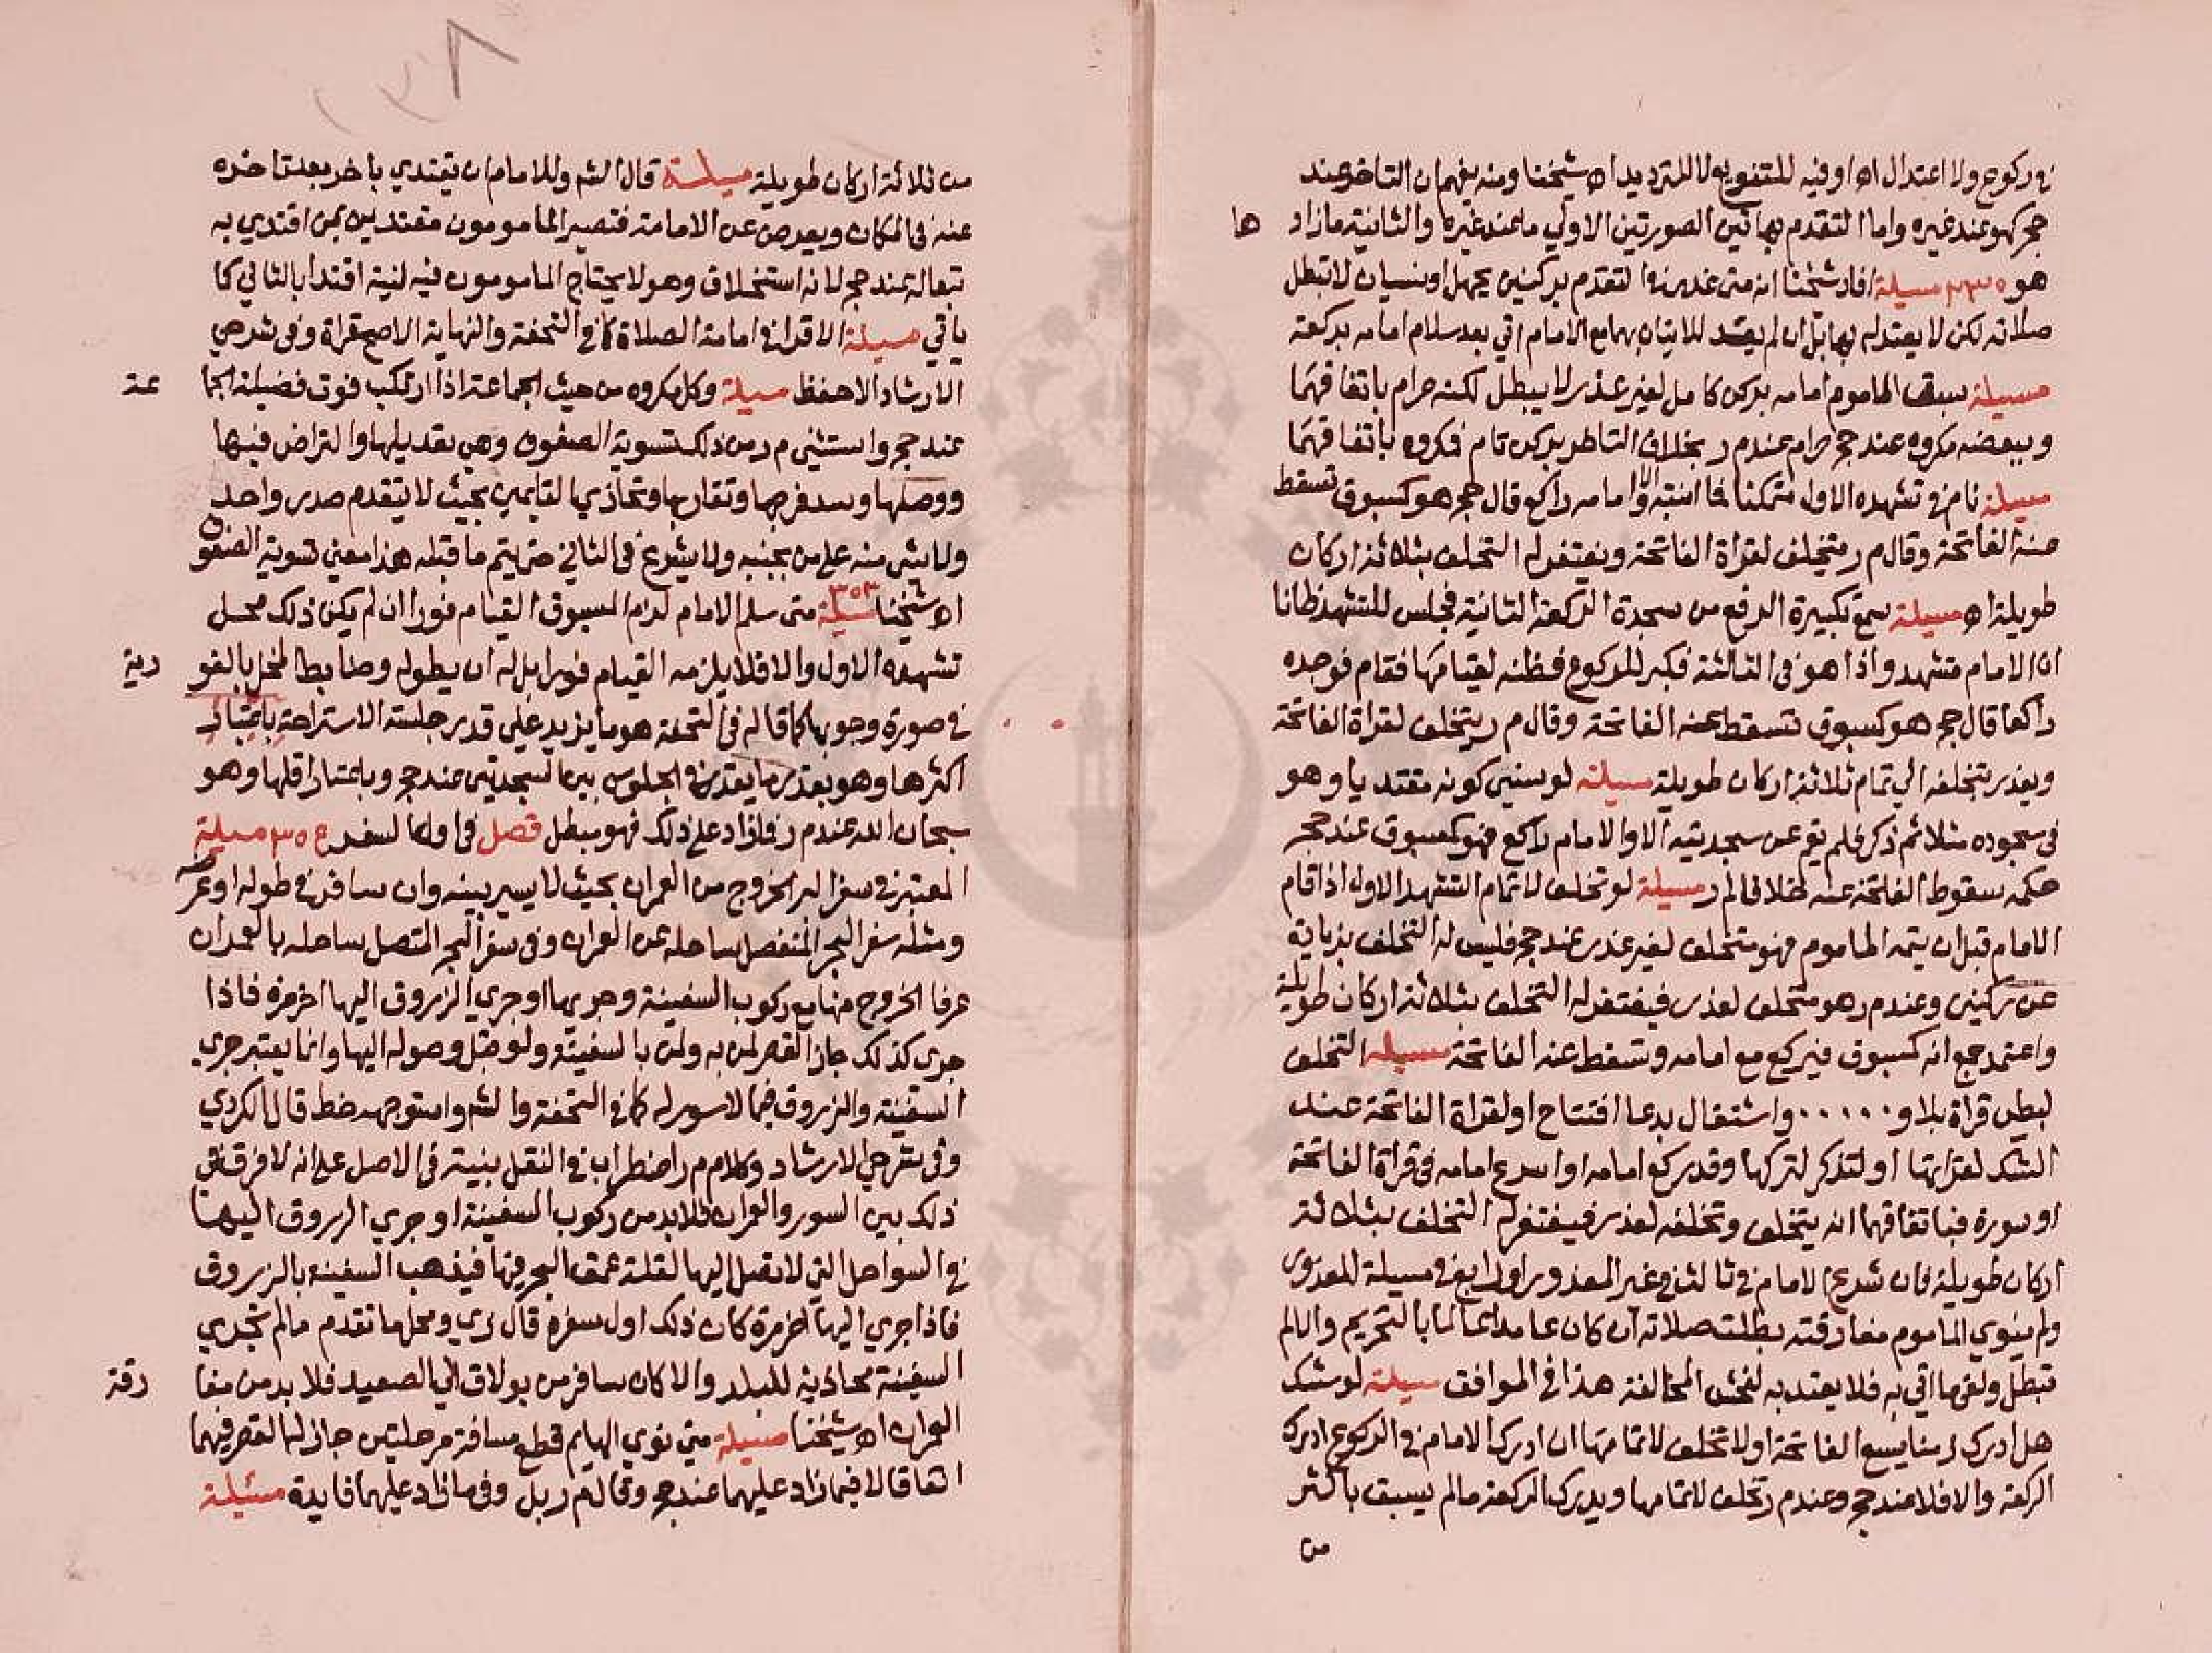 في ركوع ولا اعتدال اه اوفيه للتنويع لا للترديد اه شيخنا ومنه يفهم ان التاخر عند
حجر كهو عند غيره واما التقدم بهاتين الصورتين الاولي ما عند غيره والثانية مازاد ها
هو مسيلة افاد شيخنا انه متى عذر في التقدم بركنين بجهل او نسيان لا تبطل
صلاته لكن لا يعتد له بها بل ان لم يعد للاتيان بهما مع الامام اتي بعد سلام امامه بركعة
مسيلة سبق الماموم امامه بركن كامل لغير عذر لا يبطل لكنه حرام باتفاقهما
وببعضه مكروه عند حجر حرام عند م ر بخلاف التاخر بركن تام فمكروه باتفاقهما
مسيلة نام في تشهده الاول متمكنا فما انتبه الا وامامه راكع قال حجر هو كمسبوق تسقط
عنه الفاتحة وقال م ر يتخلف لقراة الفاتحة ويغتفر له التخلف بثلاثة اركان
طويلة اه مسيلة سمع تكبيرة الرفع من سجدة الركعة الثانية فجلس للتشهد ظانا
ان الامام متشهد واذا هو في الثالثة فكبر للركوع فظنه لقيامها فقام فوجده
راكعا قال حجر هو كمسبوق تسقط عنه الفاتحة وقال م ر يتخلف لقراة الفاتحة
ويعذر بتخلفه الي تمام ثلاثة اركان طويلة مسيلة لو نسي كونه مقتديا وهو
في سجوده مثلا ثم ذكر فلم يقم عن سجدتيه الا والامام راكع فهو كمسبوق عند حجر
حكمه سقوط الفاتحة عنه خلافا لم ر مسيلة لو تخلف لاتمام التشهد الاول اذا قام
الامام قبل ان يتمه الماموم فهو متخلف لغير عذر عند حجر فليس له التخلف بزيادة
عن ركنين وعند م ر هو متخلف لعذر فيغتفر له التخلف بثلاثة اركان طويلة
واعتمد حجع انه كمسبوق فيركع مع امامه وتسقط عنه الفاتحة مسيلة التخلف
لبطئ قراة بلا و واشتغال بدعا افتتاح او لقراة الفاتحة عند
الشك لقراتها او لتذكر لتركها وقد ركع امامه او اسرع امامه في قراة الفاتحة
او سورة فباتفاقهما انه يتخلف وتخلفه لعذر فيغتفر له التخلف بثلاثة
اركان طويلة فان شرع الامام في ثالث في غير المعذور او رابع في مسيلة المعذور
ولم ينوي الماموم مفارقته بطلت صلاته ان كان عامدا عالما بالتحريم والا لم
تبطل ولغى ما اتى به فلا يعتد به لفحش المخالفة هذا في الموافق مسيلة لو شك
هل ادرك زمنا يسع الفاتحة اولا تخلف لاتمامها ان ادرك الامام في الركوع ادرك
الركعة والا فلا عند حجر وعند م ر تخلف لاتمامها ويدرك الركعة مالم يسبق باكثر
من
١٣٨
من ثلاثة اركان طويلة مسيلة قال الشم وللامام ان يقتدي باخر بعد تاخره
عنه في المكان ويعرض عن الامامة فتصير المامومون مقتدين بمن اقتدي به
تبعا له عند حجر لانه استخلاف وهو لا يحتاج المامومون فيه لنية اقتدا بالثاني كا
ياتي مسيلة الاقرا في امامة الصلاة كما في التحفة والنهاية الاصح قراة وفي شرحي
الارشاد الاحفظ مسيلة وكل مكروه من حيث الجماعة اذا ارتكب فوت فضيلة الجما عة
عند حجر واستثني م ر من ذلك تسوية الصفوف وهي تعديلها والتراص فيها
ووصلها وسد فرجها وتقاربها وتحاذي القايمين بحيث لا يتقدم صدر واحد
ولا شئ منه على من بجنبه ولا يشرع في الثاني حتى يتم ما قبله هذا معنى تسوية الصفوف
اه شيخنا مسيلة ٣٥٣ متى سلم الامام لزم المسبوق القيام فورا ان لم يكن ذلك محل
تشهده الاول والا فلا يلزمه القيام فورا بل له ان يطوله وضابط المخل بالفو رية
في صورة وجوبها كما قاله في التحفة هو ما يزيد على قدر جلسة الاستراحة باعتبار
اكثرها وهو بقدر ما يقدر في الجلوس بين السجدتين عند حجر وباعتبار اقلها وهو
سبحان الله عند م ر فازاد على ذلك فهو مبطل فصل في اول السفر ٣٥٤ مسيلة
المعتبر في سفر البر الخروج من العمران بحيث لا يسير بينه وان سافر في طوله او عرضه
ومثله سفر البحر المنفصل ساحله عن العمران وفي سفر البحر المتصل ساحله بالعمران
عرفا الخروج منها مع ركوب السفينة وجريها او جري الزروق اليها اخر مرة فاذا
جرى كذلك جاز القصر لمن به ولمن بالسفينة ولو قبل وصوله اليها وانما يعتبر جري
السفينة والزروق فيما لا سور له كما في التحفة والشم واستوجهه خط قال الكردي
وفي شرحي الارشاد وكلام م ر اضطراب في النقل بنيته في الاصل على انه لا فرق في
ذلك بين السور والعمران فلابد من ركوب السفينة او جري الزروق اليها
في السواحل التي لا تصل اليها لقلة عمق البحر فيها فيذهب السفينة بالزروق
فاذا جري اليها اخر مرة كان ذلك اول سفره قال زي ومحل ما تقدم مالم تجري
السفينة محاذية للبلد والا كان سافر من بولاق الي الصعيد فلا بد من مفا رقة
العمران اه شيخنا مسيلة متى نوي الهايم قطع مسافة مرحلتين جاز له القصر فيهما
اتفاقا لا فيما زاد عليهما عند حجر وقال م ر بل وفيما زاد عليهما فايدة مسئلة